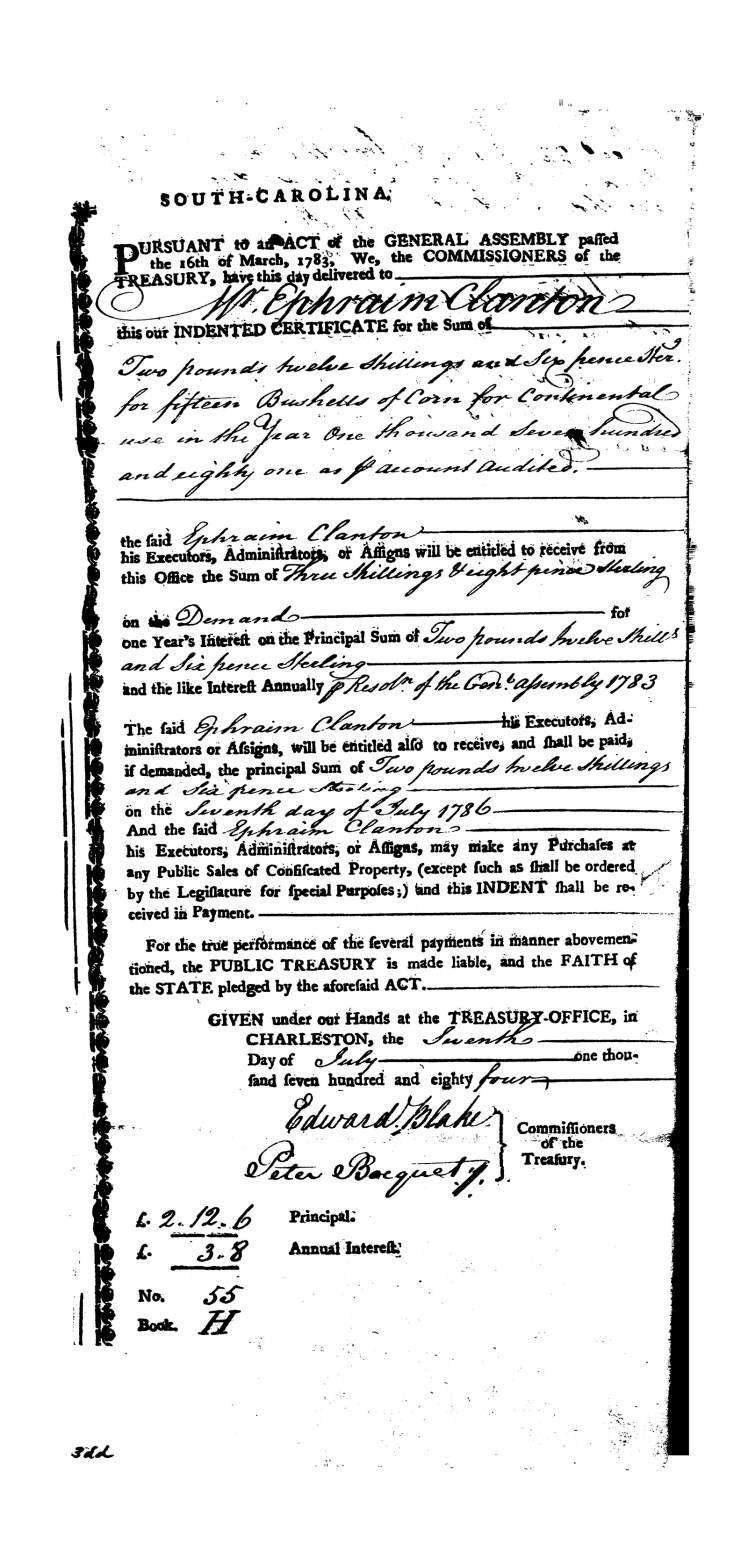 SOUTH-CAROLINA.
PURSUANT to an ACT of the GENERAL ASSEMBLY paſſed
the 16th of March, 1783, We, the COMMISSIONERS of the
TREASURY, have this day delivered to
Mr. Ephraim Clanton
this our INDENTED CERTIFICATE for the Sum of
Two pounds twelve Shillings and Six pence Ster.
for fifteen Bushells of Corn for Continental
use in the Year One thousand Seven hundred
and eighty one as ⅌ account Audited.
the ſaid Ephraim Clanton
his Executors, Adminiſtrators, or Aſſigns will be entitled to receive from
this Office the Sum of Three Shillings & eight pence Sterling
on the Demand for
one Year's Intereſt on the Principal Sum of Two pounds twelve Shills
and Six pence Sterling
and the like Intereſt Annually ⅌ Resoln. of the Genl. Assembly 1783
The ſaid Ephraim Clanton his Executors, Ad-
miniſtrators or Aſſigns, will be entitled alſo to receive, and ſhall be paid,
if demanded, the principal Sum of Two pounds twelve Shillings
and Six pence Sterling
on the Seventh day of July 1786
And the ſaid Ephraim Clanton
his Executors, Adminiſtrators, or Aſſigns, may make any Purchaſes at
any Public Sales of Confiſcated Property, (except ſuch as ſhall be ordered
by the Legiſlature for ſpecial Purpoſes;) and this INDENT ſhall be re-
ceived in Payment.
For the true performance of the ſeveral payments in manner abovemen-
tioned, the PUBLIC TREASURY is made liable, and the FAITH of
the STATE pledged by the aforeſaid ACT.
GIVEN under our Hands at the TREASURY-OFFICE, in
CHARLESTON, the Seventh
Day of July one thou-
ſand ſeven hundred and eighty four
Edward Blake
Commiſſioners
of the
Treaſury.
Peter Bocquet
£. 2.12.6 Principal.
£. 3.8 Annual Intereſt.
No. 55
Book. H
3dd